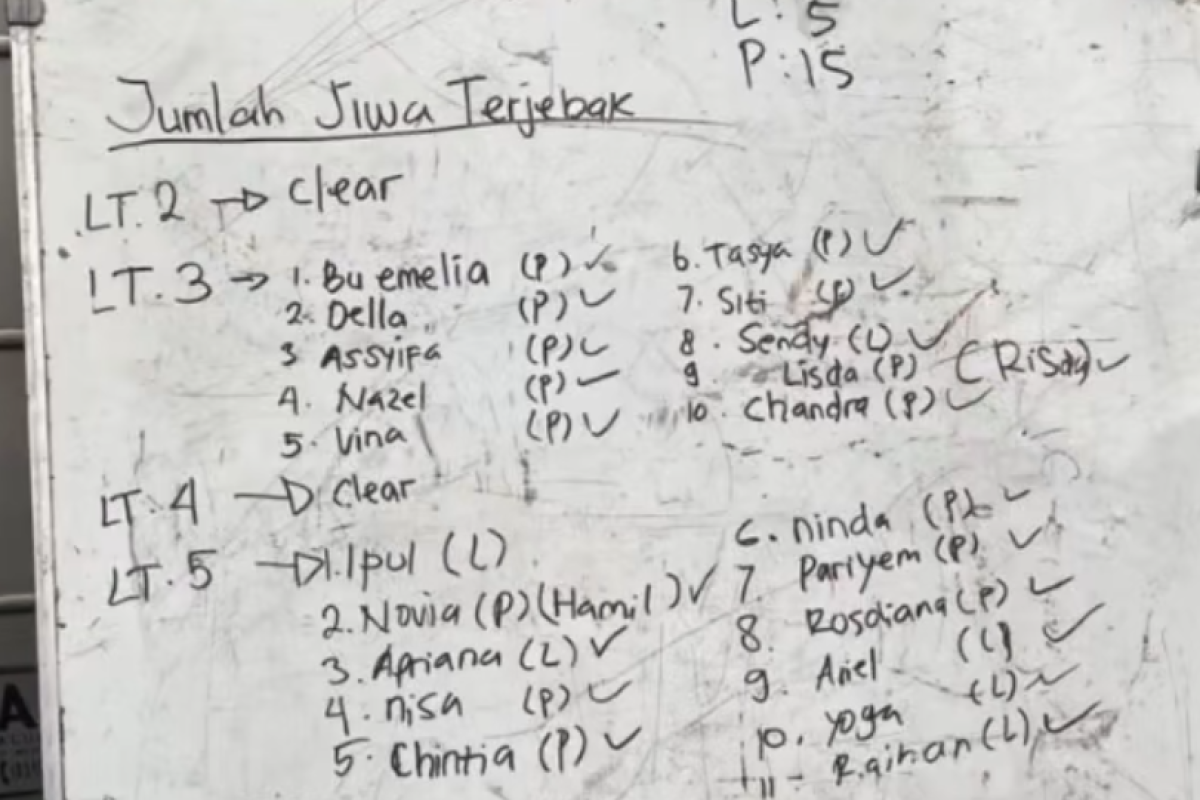 L : 5
P : 15
Jumlah Jiwa Terjebak
LT. 2 → Clear
LT. 3 → 1. Bu emelia (P) ✓
2. Della (P) ✓
3 Assyifa (P) ✓
4. Nazel (P) ✓
5. Vina (P) ✓
6. Tasya (P) ✓
7. Siti (P) ✓
8. Sendy (L) ✓
9. Lisda (P) (Risda) ✓
10. Chandra (P) ✓
LT. 4 → Clear
LT. 5 → 1. Ipul (L)
2. Novia (P) (Hamil) ✓
3. Apriana (L) ✓
4. nisa (P) ✓
5. Chintia (P) ✓
6. ninda (P) ✓
7. Pariyem (P) ✓
8. Rosdiana (P) ✓
9. Ariel (L) ✓
10. yoga (L) ✓
11 - Raihan (L) ✓